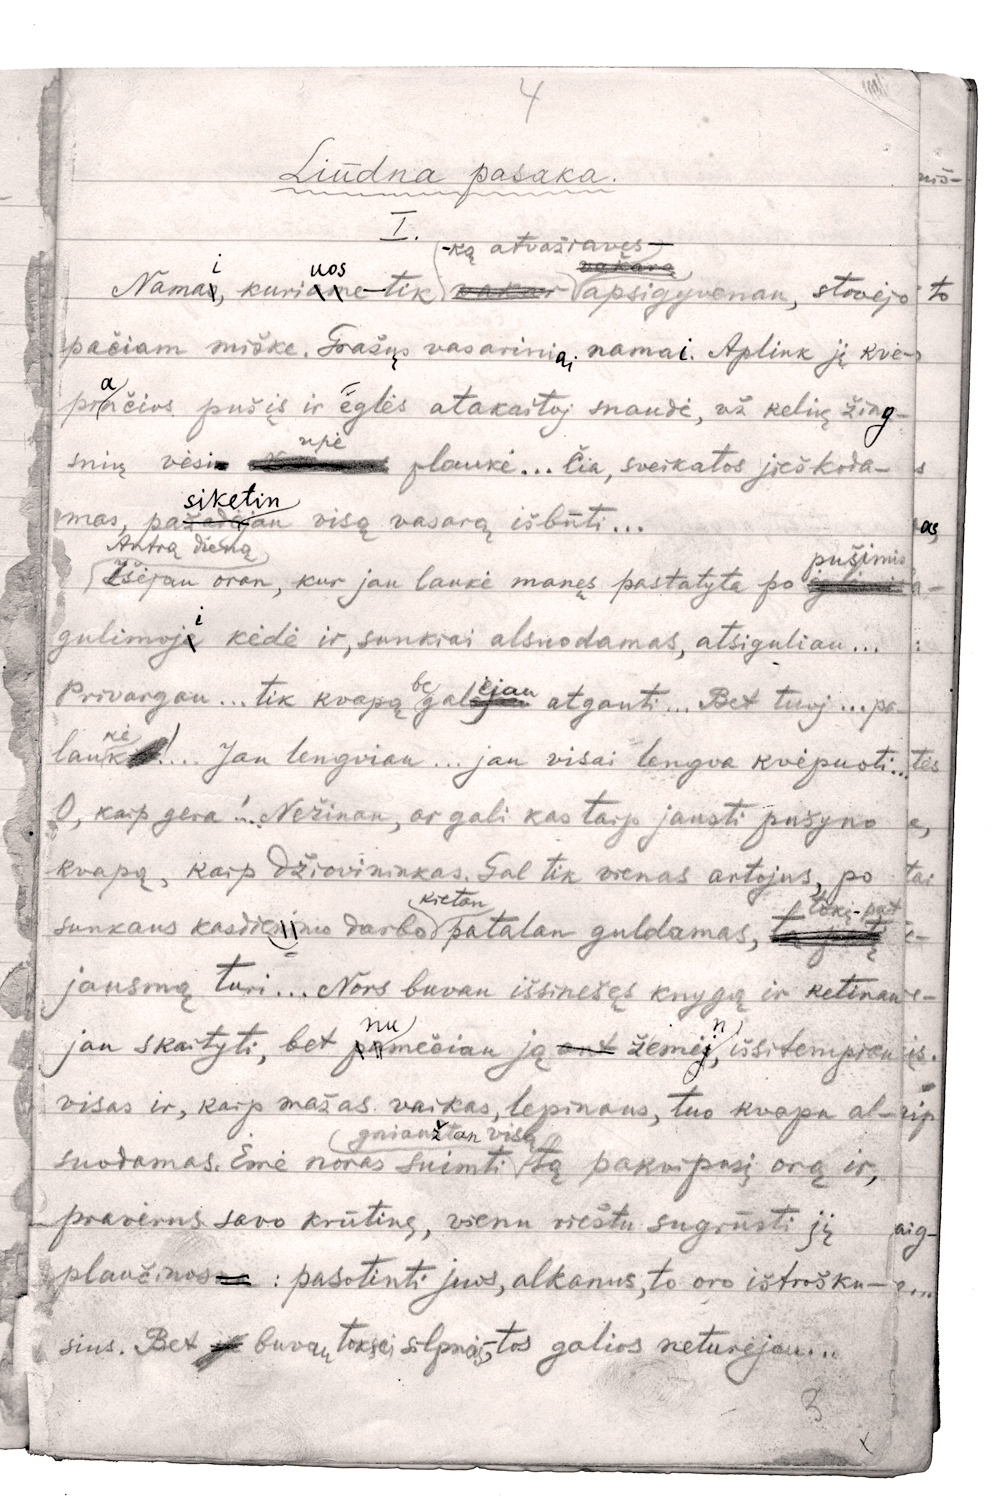 4
Liūdna pasaka.
I.
-ką atvažiavęs
Namai, kuriuos tik apsigyvenau, stovėjo to
pačiam miške. Gražųs vasariniai namai. Aplink jį kve-
piančios pušįs ir ėglės atakaitoj snaudė, už kelių žing-
snių vėsi upė plaukė... Čia, sveikatos jieškoda-
mas, pasiketinau visą vasarą išbūti...
Antrą dieną
Išėjau oran, kur jau laukė manęs pastatyta po pušimis
gulimoji kėdė ir, sunkiai alsuodamas, atsiguliau...
Privargau... tik kvapą begalėjau atgauti... Bet tuoj... pa-
laukė!... Jau lengviau... jau visai lengva kvėpuoti...
O, kaip gera!.. Nežinau, ar gali kas taip jausti pušyno
kvapą, kaip džiovininkas. Gal tik vienas artojus, po
sunkaus kasdieninio darbo kietan patalan guldamas, tokį-pat
jausmą turi... Nors buvau išsinešęs knygą ir ketinau
jau skaityti, bet numečiau ją žemėn, išsitempiau
visas ir, kaip mažas vaikas, lepinaus, tuo kvapu al-
suodamas. Ėmė noras suimti gniaužtan visą tą pakvipusį orą ir,
pravėrus savo krūtinę, vienu riestu sugrūsti jį
plaučiuos : pasotinti juos, alkanus, to oro ištrošku-
sius. Bet buvau toksei silpnas, tos galios neturėjau...
3
x